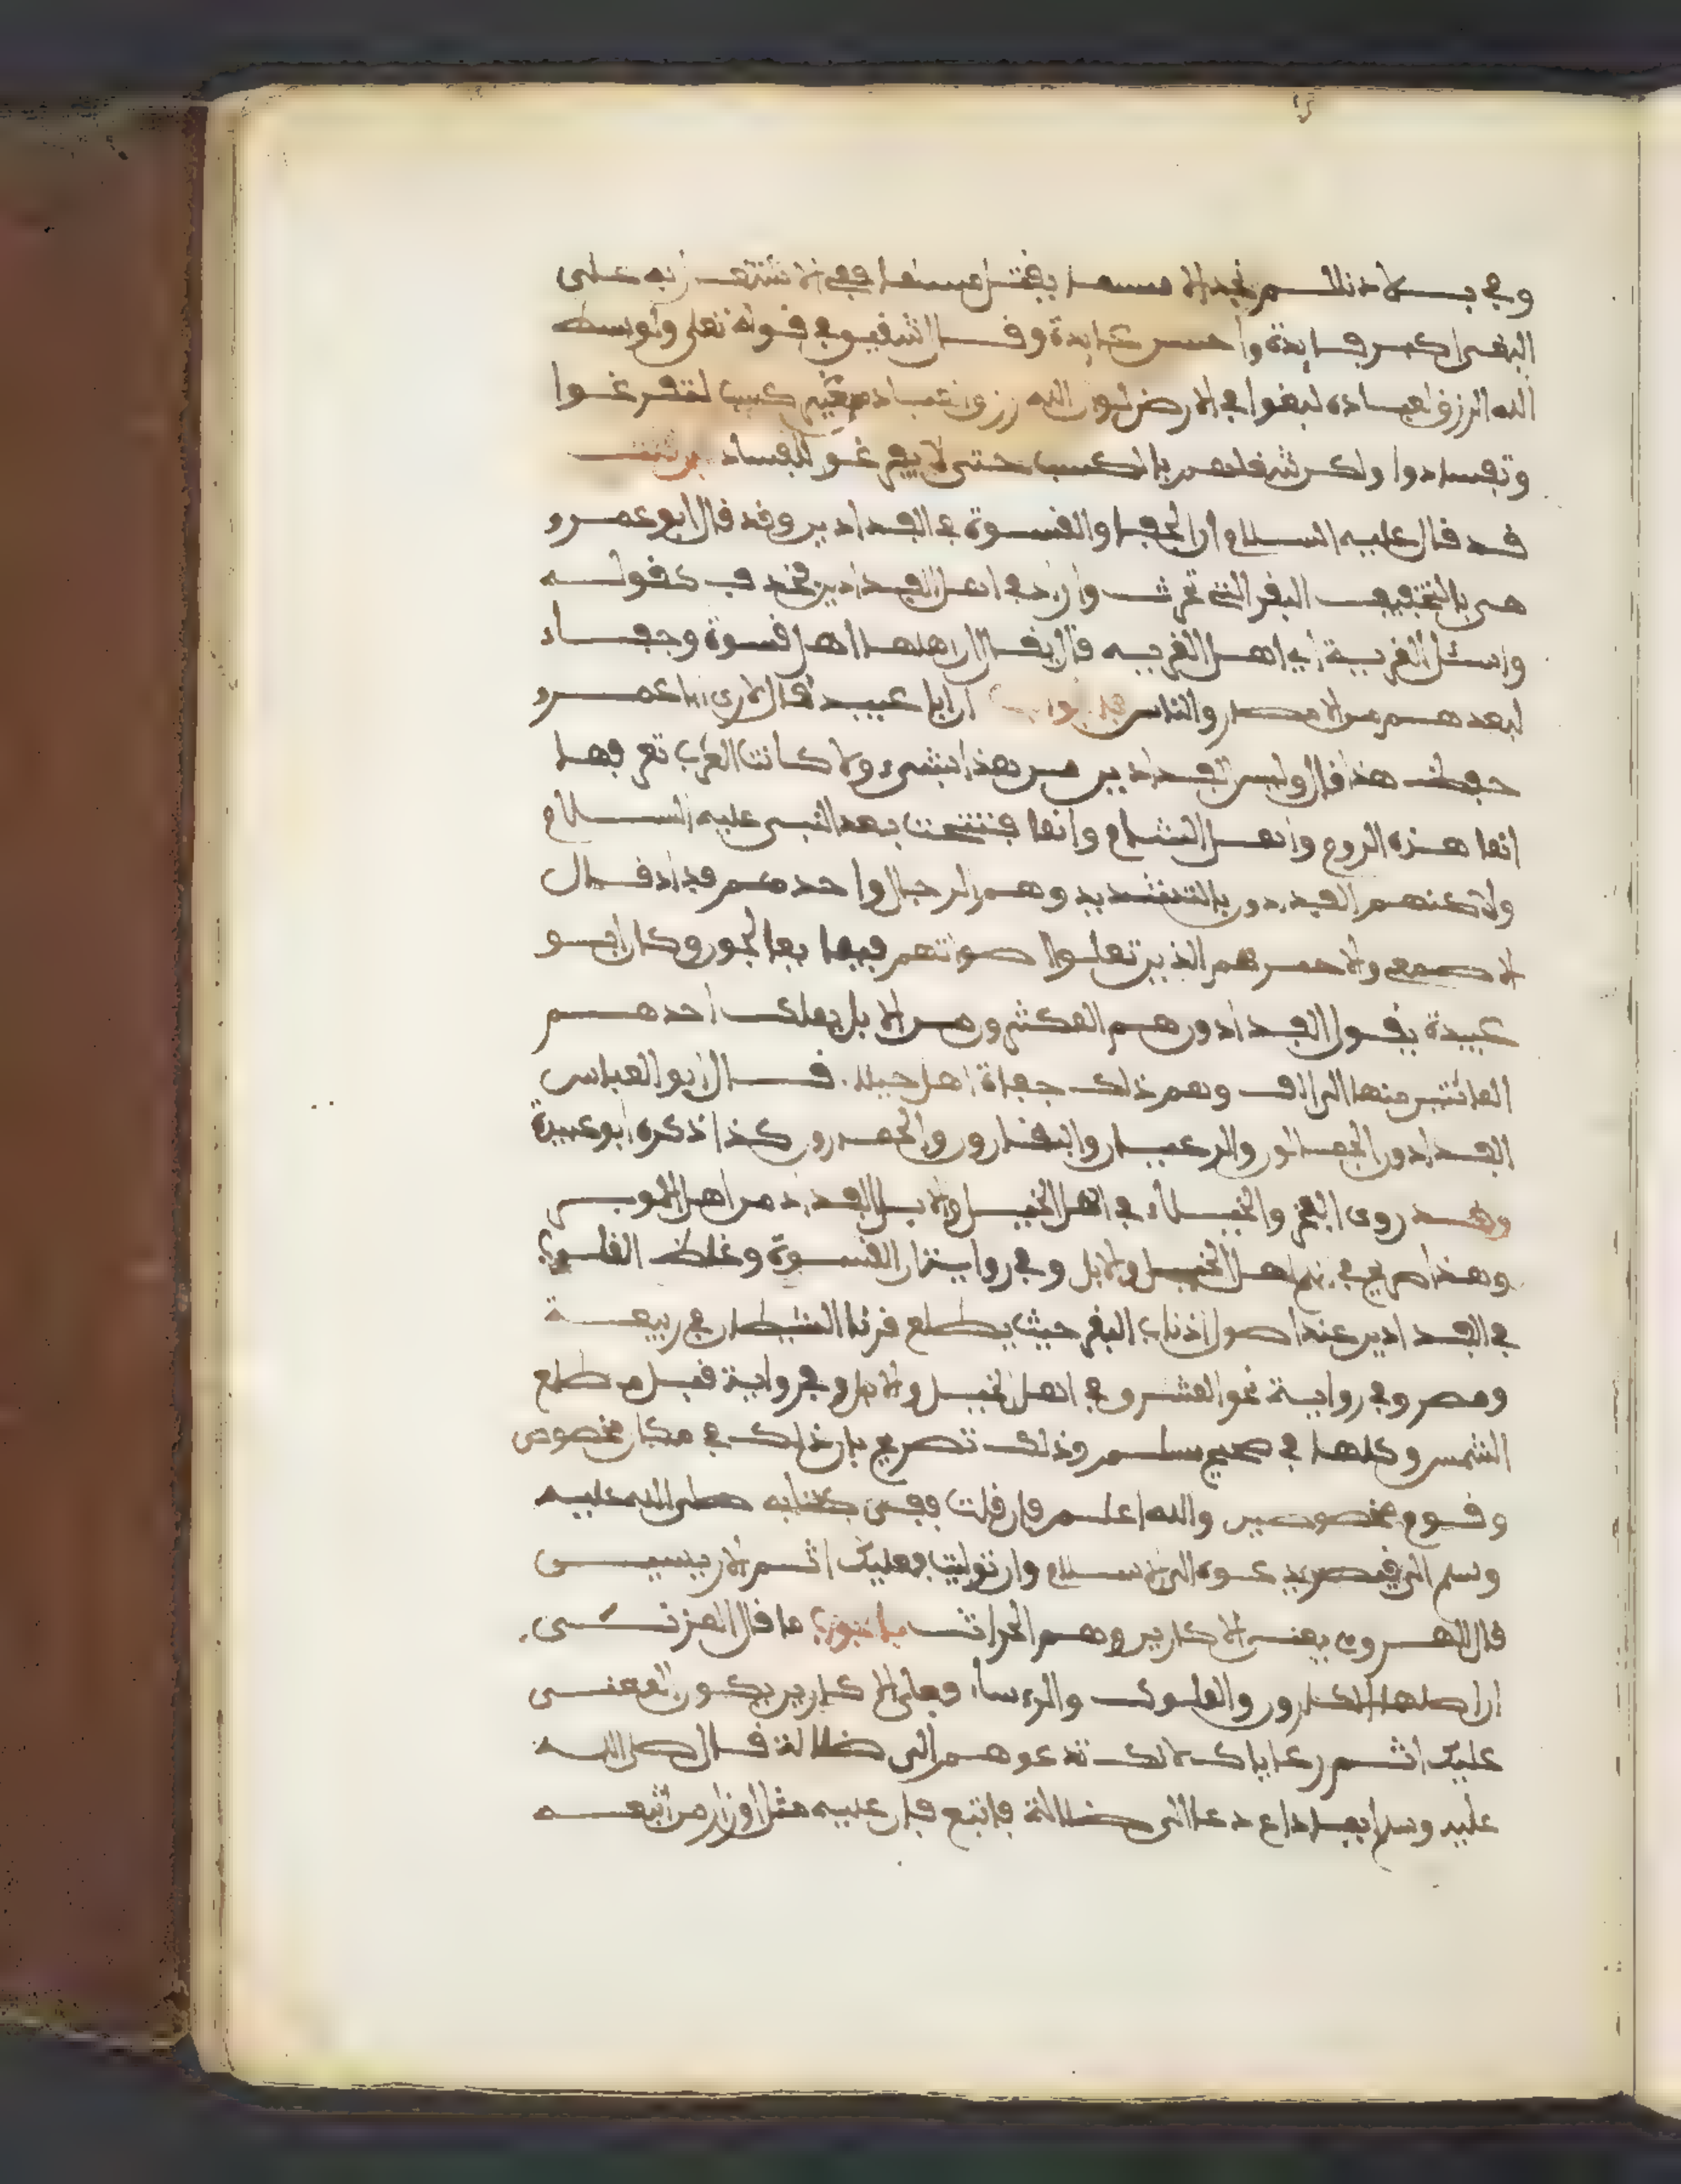 البقر اكثر فايدة واحسن عايدة وقال الشقيق في قوله تعلى ولو بسط
الله الرزق لعباده لبغوا في الارض لو ان الله رزق عباده من غير كسب لتفرغوا
وتفاسدوا ولكن شغلهم بالكسب حتى لا يتفرغوا للفساد
قد قال عليه السلام ان الجفا والقسوة في الفدادين وقد قال ابو عمرو
هي بالتخفيف البقر التي تحرث واراد في اهل الفدادين فحذف كقوله
واسئل القرية اي اهل القرية قال يقال ان اهلها اهل قسوة وجفاء
لبعدهم من الامصار والناس ان ابا عبيد قال لا ارى ابا عمرو
حفظ هذا قال وليس الفدادين من هذا بشيء ولا كانت العرب تعرفها
انما هذه الروم واهل الشام وانما فتتحت بعد النبي عليه السلام
ولاكنهم الفدادون بالتشديد وهم الرجال واحدهم فداد قال
الاصمعي والاحمر هم الذين تعلوا صواتهم فيها وكان ابو
عبيدة يقول الفدادون هم المكثرون من الابل يملك احدهم
المائتين منها الى الالف وهم ذلك جفاة اهل خيلا. قال ابو العباس
الفدادون الجمالون والرعيان والبقارون والحمارون كذا ذكره ابو عبيدة
وقد روى الفخر والخيلاء في اهل الخيل والابل الفداد من اهل الوبر
وهذا صريح في ذم اهل الخيل والابل وفي رواية ان القسوة وغلظ القلوب
في الفدادين عند اصول اذناب البقر حيث يطلع قرنا الشيطان في ربيعة
ومضر وفي رواية نحو المشرق في اهل الخيل والابل وفي رواية قبل مطلع
الشمس وكلها في صحيح مسلم وذلك تصريح بان ذلك في مكان مخصوص
وقوم مخصوصين والله اعلم فان قلت ففي كتابه صلى الله عليه
وسلم الى قيصر يدعوه الى الاسلام وان توليت فعليك اثم الاريسيين
قال الهروي يعني الاكارين وهم الحراثة ما قال المزني
ان اصلها الاكارون والملوك والرءساء فعلى الاكارين يكون المعنى
عليك اثم رعاياك لانك تدعوهم الى ضلالة قال صلى الله
عليه وسلم ايما داع دعا الى ضلالة فاتبع فان عليه مثل اوزار من اتبعه